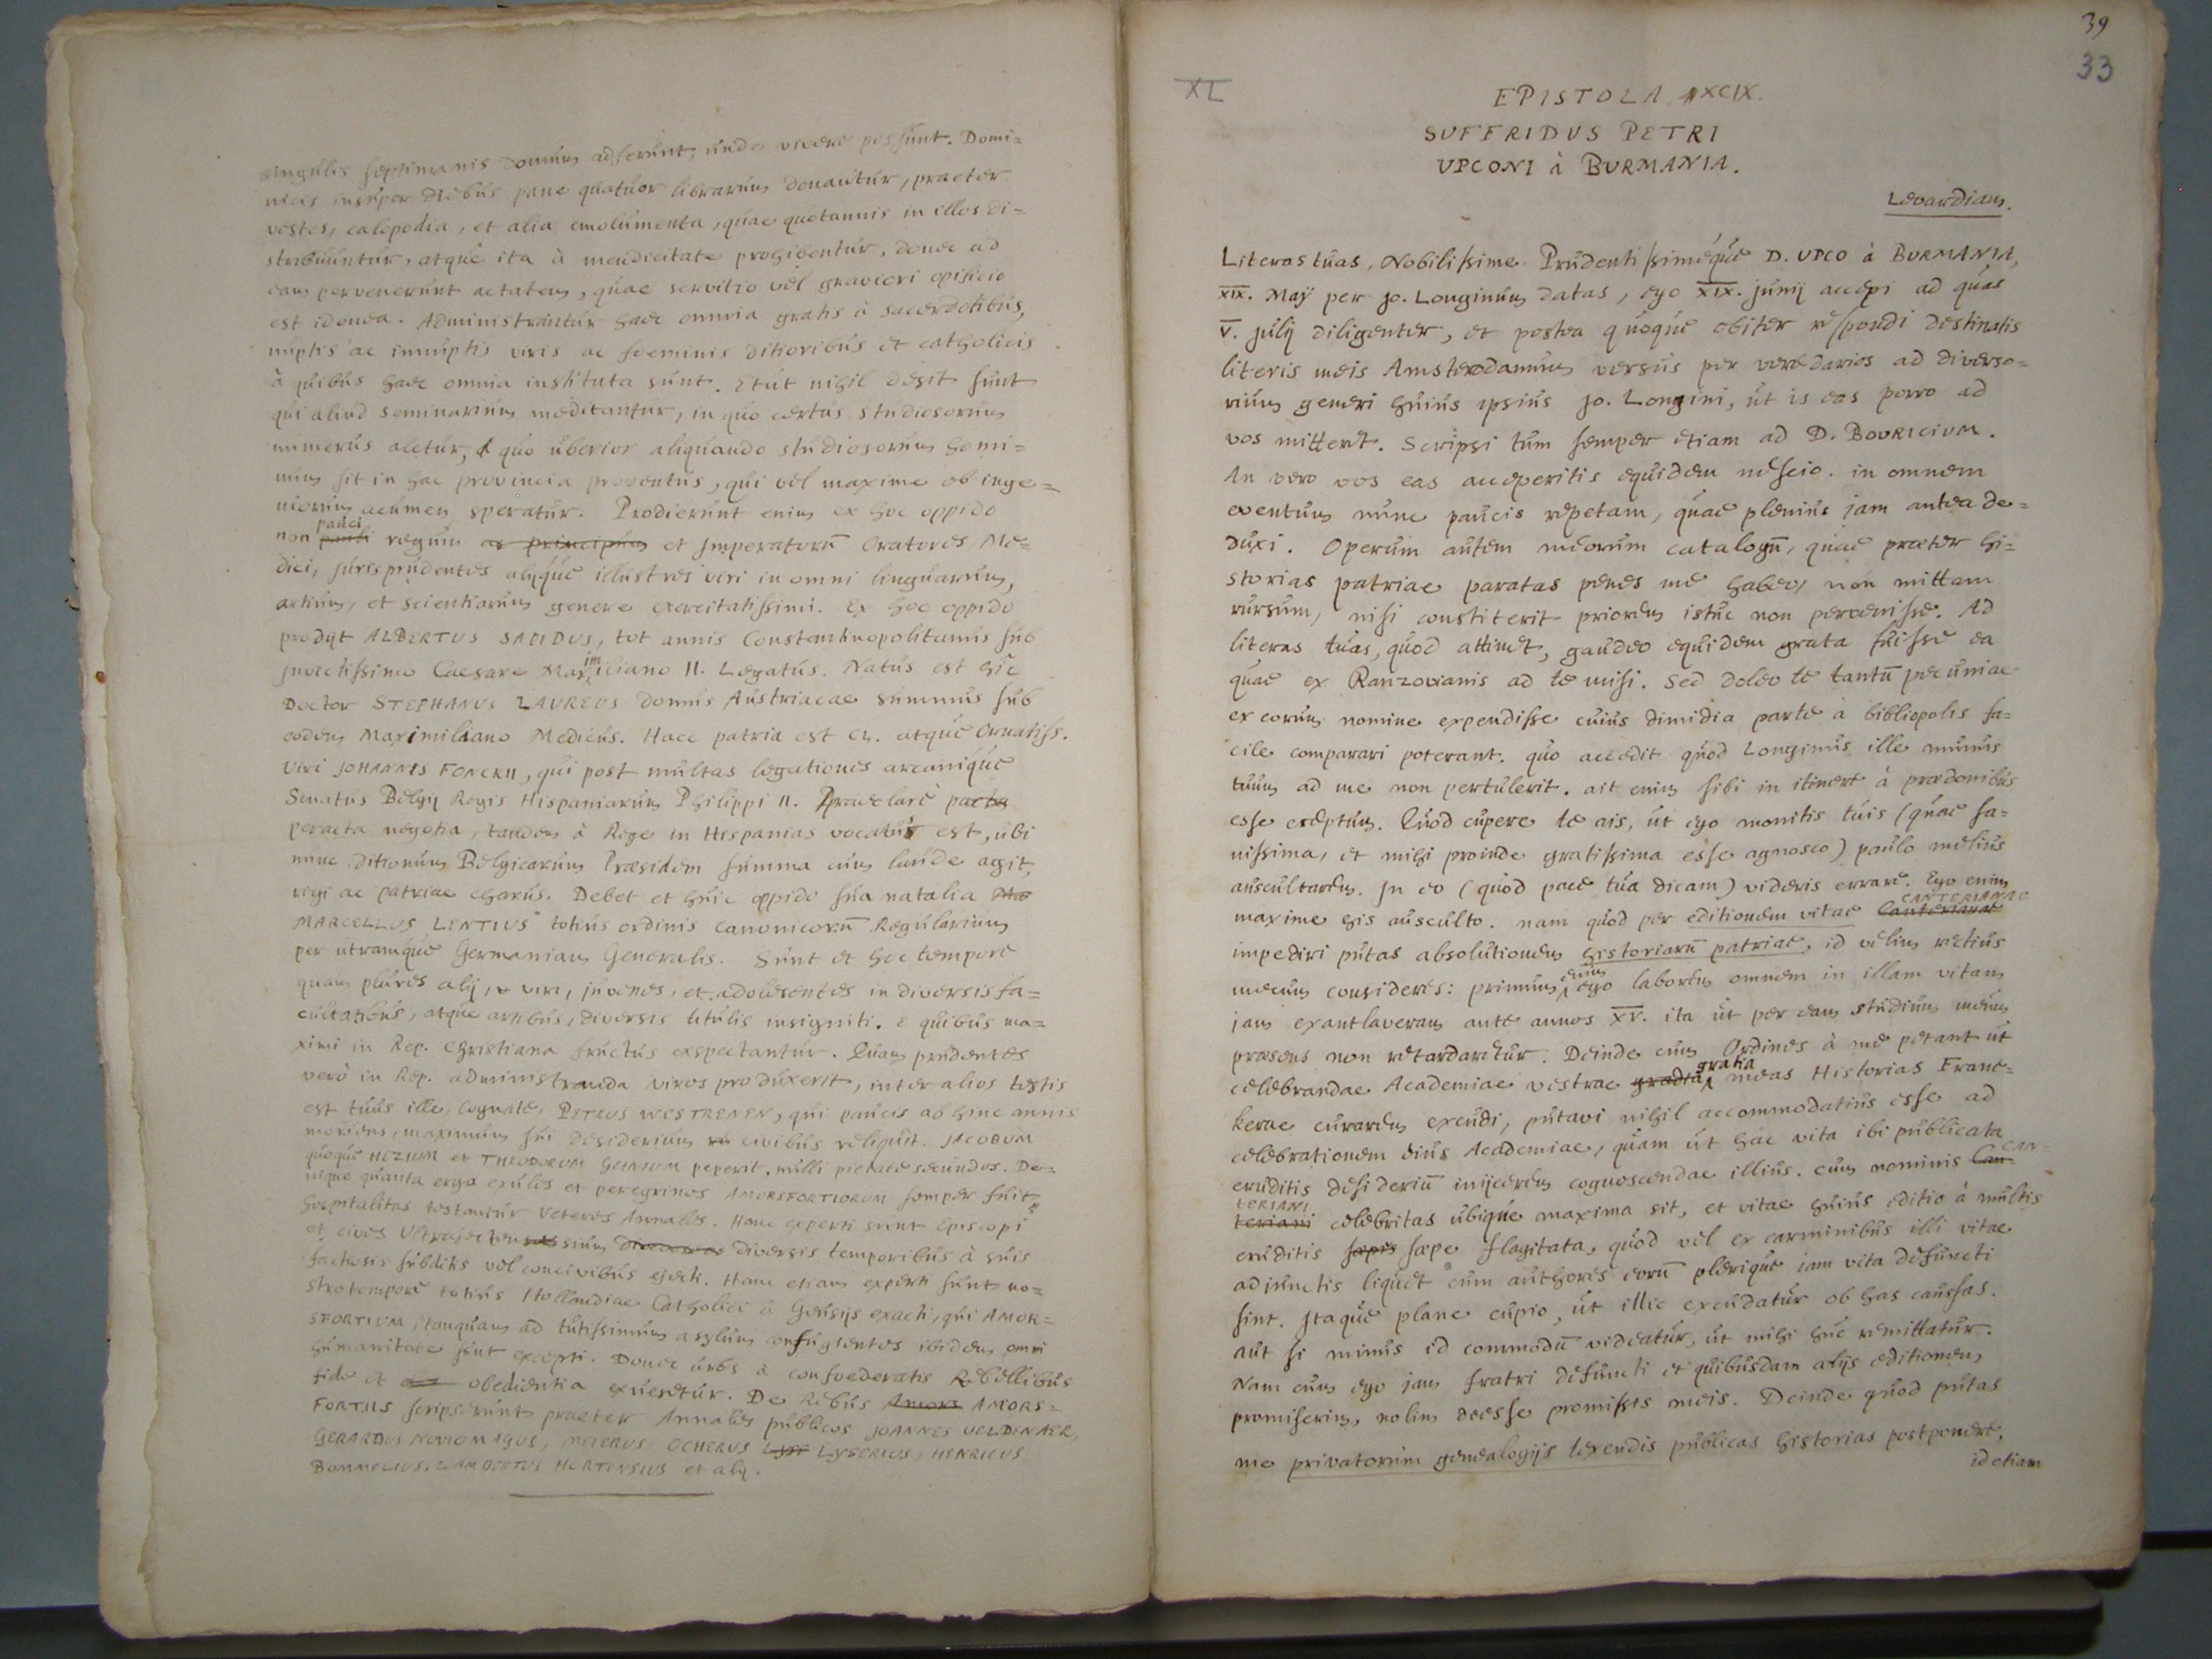 singulis septimanis domum adferunt, unde vivere possunt. Domi=
nicis insuper diebus pane quatuor librarum donantur, praeter
vestes, calopodia, et alia emolumenta, quae quotannis in illos di=
stribuuntur, atque ita à mendicitate prohibentur, donec ad
eam pervenerunt aetatem, quae servitio vel graviori opificio
est idonea. Administrantur haec omnia gratis à sacerdotibus,
nuptis ac innuptis viris ac foeminis ditioribus et catholicis
à quibus haec omnia instituta sunt. Et ut nihil desit sunt
qui aliud seminarium meditantur, in quo certus studiosorum
numerus aletur, quo uberior aliquando studiosorum homi=
num sit in hac provincia proventus, qui vel maxime ob inge=
niorum acumen speratur. Prodierunt enim ex hoc oppido
pauci
non pauci regum ac principum et Imperatorū Oratores, Me=
dici, Jurisprudentes alijque illustres viri in omni linguarum,
artium, et scientiarum genere exercitatissimi. Ex hoc oppido
prodijt ALBERTUS SALIDUS, tot annis Constantinopolitanus sub
im
Invictissimo Caesare Maxiliano II. Legatus. Natus est hic
Doctor STEPHANUS LAUREUS domus Austriacae summus sub
eodem Maximiliano Medicus. Haec patria est Cl. atque Ornatiss.
Viri JOHANNIS FONCKII, qui post multas legationes arcanique
Senatus Belgij Regis Hispaniarum Philippi II. Praeclare pacta
peracta negotia, tandem à Rege in Hispanias vocatus est, ubi
nunc ditionum Belgicarum Praesidem summa cum laude agit,
regi ac patriae charus. Debet et huic oppido sua natalia Mar
MARCELLUS LENTIUS totius ordinis Canonicorū Regularium
per utramque Germaniam Generalis. Sunt et hoc tempore
quam plures alij, v viri, juvenes, et adolesentes in diversis fa=
cultatibus, atque artibus, diversis titulis insigniti. e quibus ma=
ximi in Rep. Christiana fructus exspectantur. Quam prudentes
verò in Rep. administranda viros produxerit, inter alios testis
est tuus ille, Cognate, PETRUS WESTRENEN, qui paucis ab hinc annis
moriens, maximum sui desiderium civibus reliquit. JACOBUM
quoque HEZIUM et THEODORUM GEINIUM peperit, nulli pietate secundos. De=
nique quanta erga exules et peregrinos AMORSFORTIORUM semper fuit
hospitalitas testantur Veteres Annales. Hanc experti sunt Episcopi
et cives Ultrajectensium diversis temporibus à suis
factiosis subditis vel concivibus ejecti. Hanc etiam experti sunt no=
stro tempore totius Hollandiae Catholici à Geusijs exacti, qui AMOR=
SFORTIUM, tanquam ad tutissimum asylum confugientes ibidem omni
humanitate sunt excepti. Donec urbs à confoederatis Rebellibus
fide et obedientia exueretur. De Rebus Amors AMORS=
FORTIIS scripserunt praeter Annales publicos JOANNES VELDENAER,
GERARDUS NOVIOMAGUS, MEIERUS OCHERUS Lyst LYSERIUS, HENRICUS
BOMMELIUS, LAMBERTUS HORTENSIUS et alij.
39
33
XL
EPISTOLA XCIX.
SUFFRIDUS PETRI
UPCONI à BURMANIA.
Leoardiam.
Literas tuas, Nobilissime Prudentissiméque D. UPCO à BURMANIA,
XIX. Maÿ per Jo. Longinum datas, ego XIX. Junij accepi ad quas
V. Julij diligenter, et postea quoque obiter respondi destinatis
literis meis Amsterodamum versus per veredarios ad diverso=
rium generi huius ipsius Jo. Longini, ut is eas porro ad
vos mitteret. Scripsi tum semper etiam ad D. BOURICIUM.
An vero vos eas acceperitis equidem nescio. in omnem
eventum nunc paucis repetam, quae plenius jam antea de=
duxi. Operum autem meorum catalogū, quae praeter hi=
storias patriae paratas penes me habeo, non mittam
rursum, nisi constiterit priorem istuc non pervenisse. Ad
literas tuas, quod attinet, gaudeo equidem grata fuisse ea
quae ex Ranzovianis ad te misi. Sed doleo te tantū pecuniae
ex eorum nomine expendisse cuius dimidia parte à bibliopolis fa=
cile comparari poterant. quo accedit quod Longinus ille munus
tuum ad me non pertulerit. ait enim sibi in itinere à praedonibus
esse ereptum. Quod cupere te ais, ut ego monitis tuis (quae sa=
nissima, et mihi proinde gratissima esse agnosco) paulo melius
auscultarem. In eo (quod pace tua dicam) videris errare. Ego enim
CANTERIANAE
maxime his ausculto. nam quod per editionem vitae Canterianae
impediri putas absolutionem historiarū patriae, id velim rectius
enim
mecum consideres: primum ego laborem omnem in illam vitam
jam exantlaveram ante annos XV. ita ut per eam studium meum
praesens non retardaretur. Deinde cum Ordines à me petant ut
gratia
celebrandae Academiae vestrae gradia meas Historias Frane=
kerae curarem excudi, putavi nihil accommodatius esse ad
celebrationem eius Academiae, quam ut hac vita ibi publicata
CAN=
eruditis desideriū inijcerem cognoscendae illius. cum nominis Can=
TERIANI
teriani celebritas ubique maxima sit, et vitae huius editio à multis
eruditis saepis saepe flagitata, quod vel ex carminibus illi vitae
adjunctis liquet cum authores eorū plerique iam vita defuncti
sint. Itaque plane cupio, ut illic excudatur ob has caussas.
aut si minus id commodū videatur, ut mihi huc remittatur.
Nam cum ego jam fratri defuncti et quibusdam alijs editionem
promiserim, nolim deesse promissis meis. Deinde quod putas
me privatorum genealogijs texendis publicas historias postponere,
id etiam